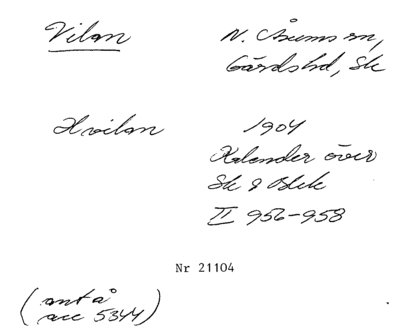 Vilan N. Åsums sn,
Gärdshd, Sk
Hvilan 1904
Kalender över
Sk o Blek
II 956-958
Nr 21104
(ant å
acc 5344)